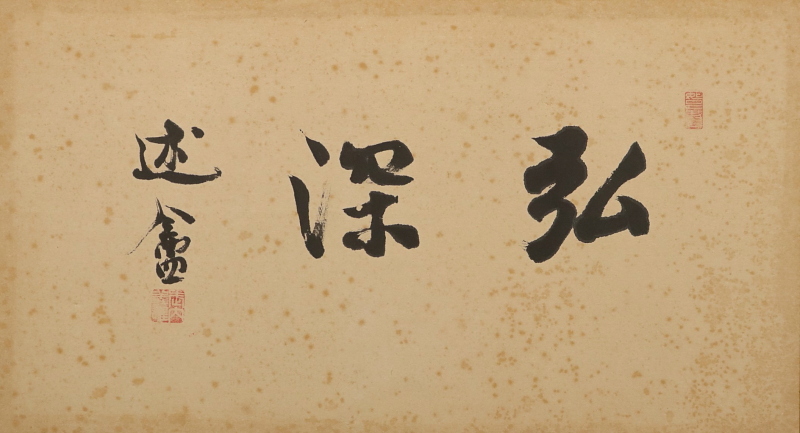 弘深
述盦